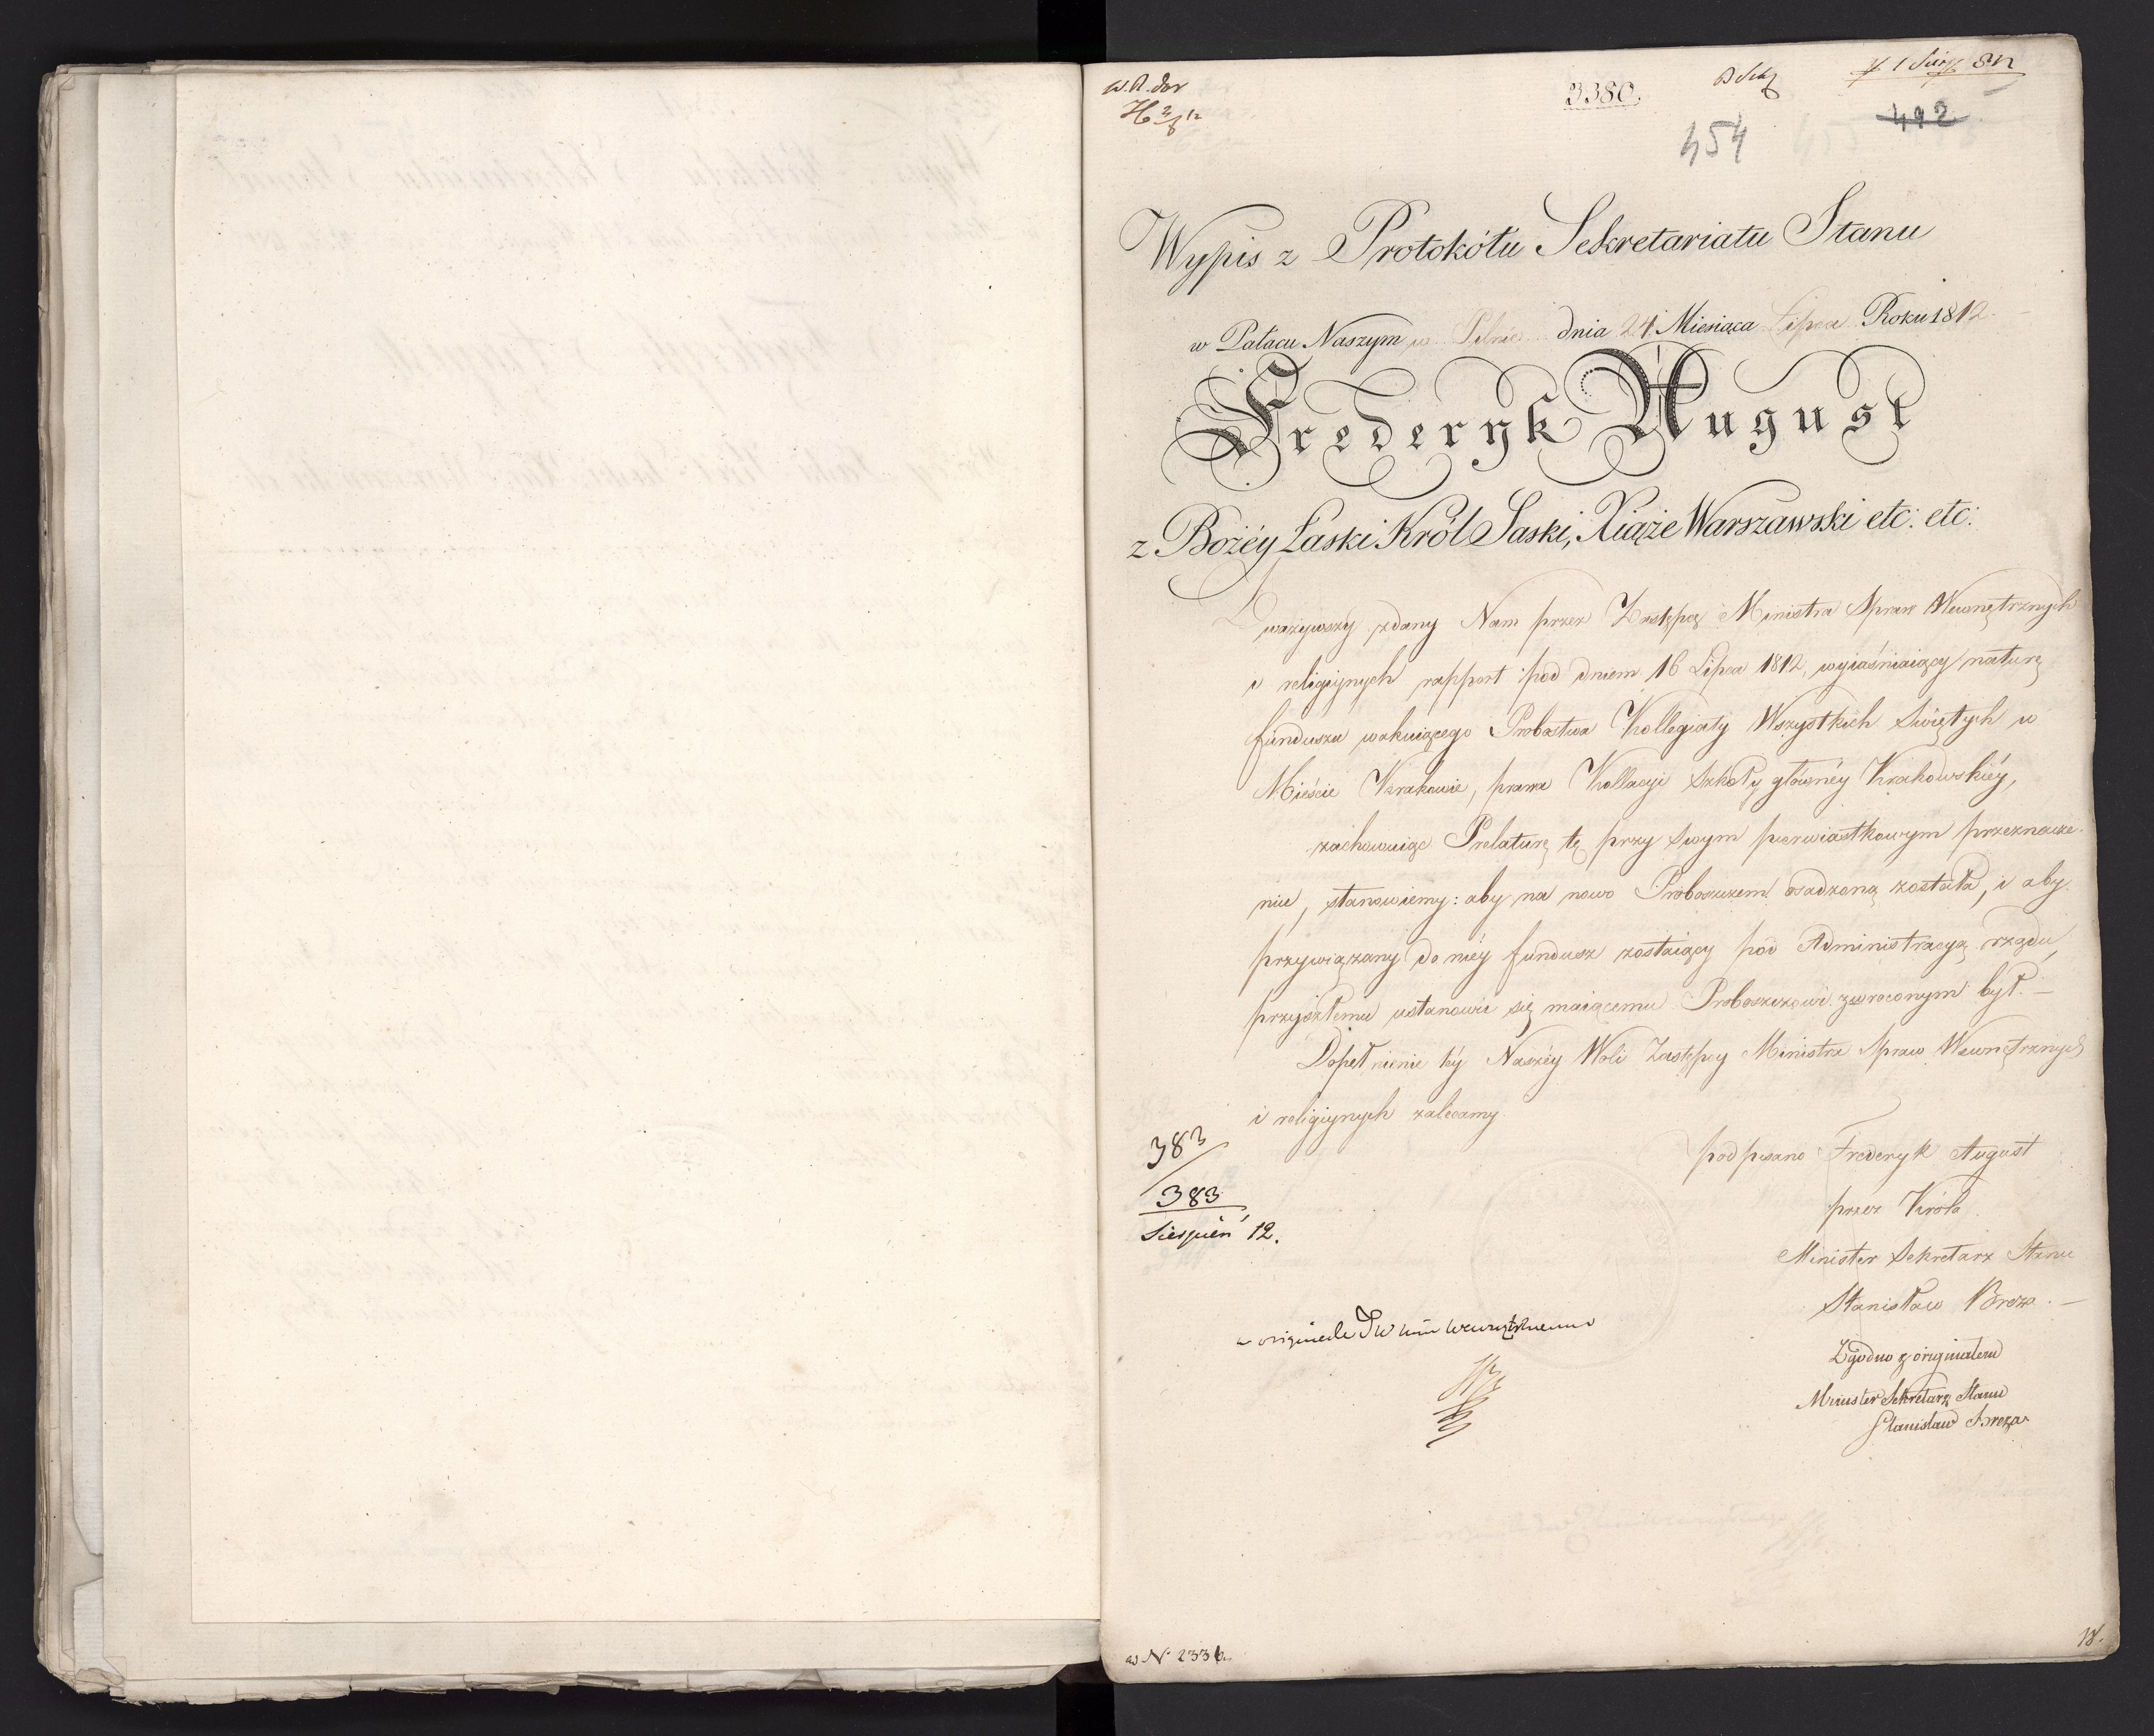 3380.
454
492
Wypis z Protokółu Sekretariatu Stanu
w Pałacu Naszym w Pilnic dnia 24 Miesiąca Lipca Roku 1812.
Frederyk August
z Bożéy Łaski Król Saski, Xiąże Warszawski etc: etc:
Zważywszy zdany Nam przez Zastępcę Ministra Spraw Wewnętrznych
i religiynych rapport pod dniem 16 Lipca 1812, wyiaśniaiący naturę
funduszu wakuiącego Probostwa Kollegiaty Wszystkich Świętych w
Mieście Krakowie, prawa Kollacyi Szkoły głównéy Krakowskiéy,
zachowuiąc Prelaturę tę przy swym pierwiastkowym przeznacze-
nie, stanowiemy: aby na nowo Proboszczem osadzoną została, i aby
przywiązany do niéy fundusz zostaiący pod Administracyą rządu,
przyszłemu ustanowić się maiącemu Proboszczowi zwroconym był. —
Dopełnienie téy Naszéy Woli Zastępcy Ministra Spraw Wewnętrznych
i religiynych zalecamy
383
383
Sierpień 12.
podpisano Frederyk August
przez Króla
Minister Sekretarz Stanu
Stanisław Breza. —
w originale
Zgodno z originałem
Minister Sekretarz Stanu
Stanisław Breza
ad N. 2336.
18.